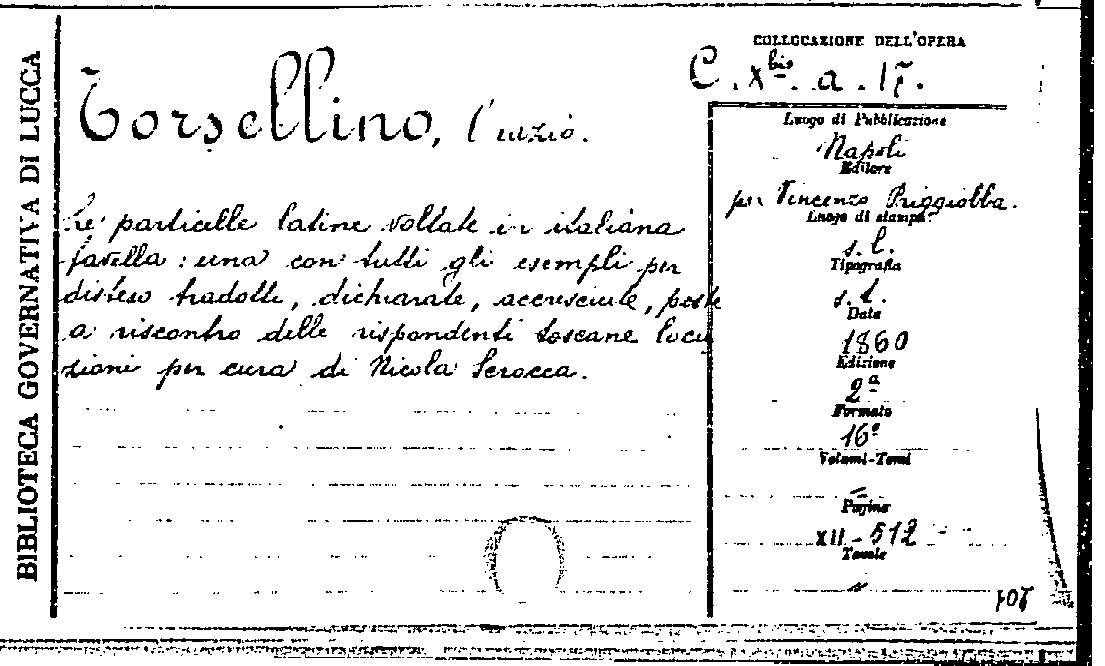 BIBLIOTECA GOVERNATIVA DI LUCCA
COLLOCAZIONE DELL'OPERA
C. X bis. a. 17.
Torsellino,
Luogo di Pubblicazione
Napoli
Editore
per Vincenzo Priggiobba.
Luogo di stampa
s. l.
Tipografia
s. t.
Data
1860
Edizione
2ª
Formato
16º
Volumi-Tomi
Pagine
XII - 512
Tavole
Le particelle latine voltate in italiana
favella: una con tutti gli esempli per
disteso tradotte, dichiarate, accresciute, poste
a riscontro delle rispondenti toscane locu
zioni per cura di Nicola Scrocca.